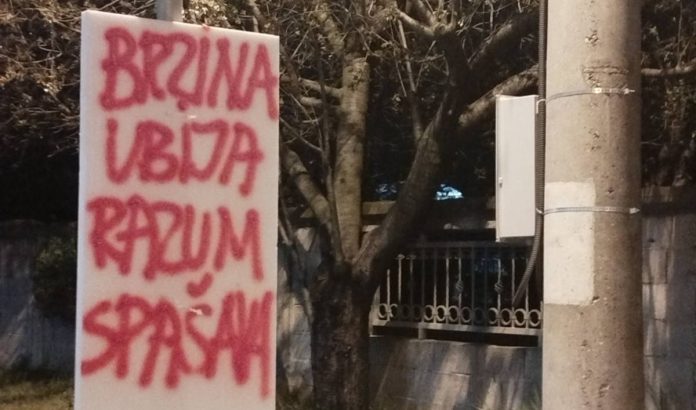 BRZINA
UBIJA
RAZUM
SPAŠAVA